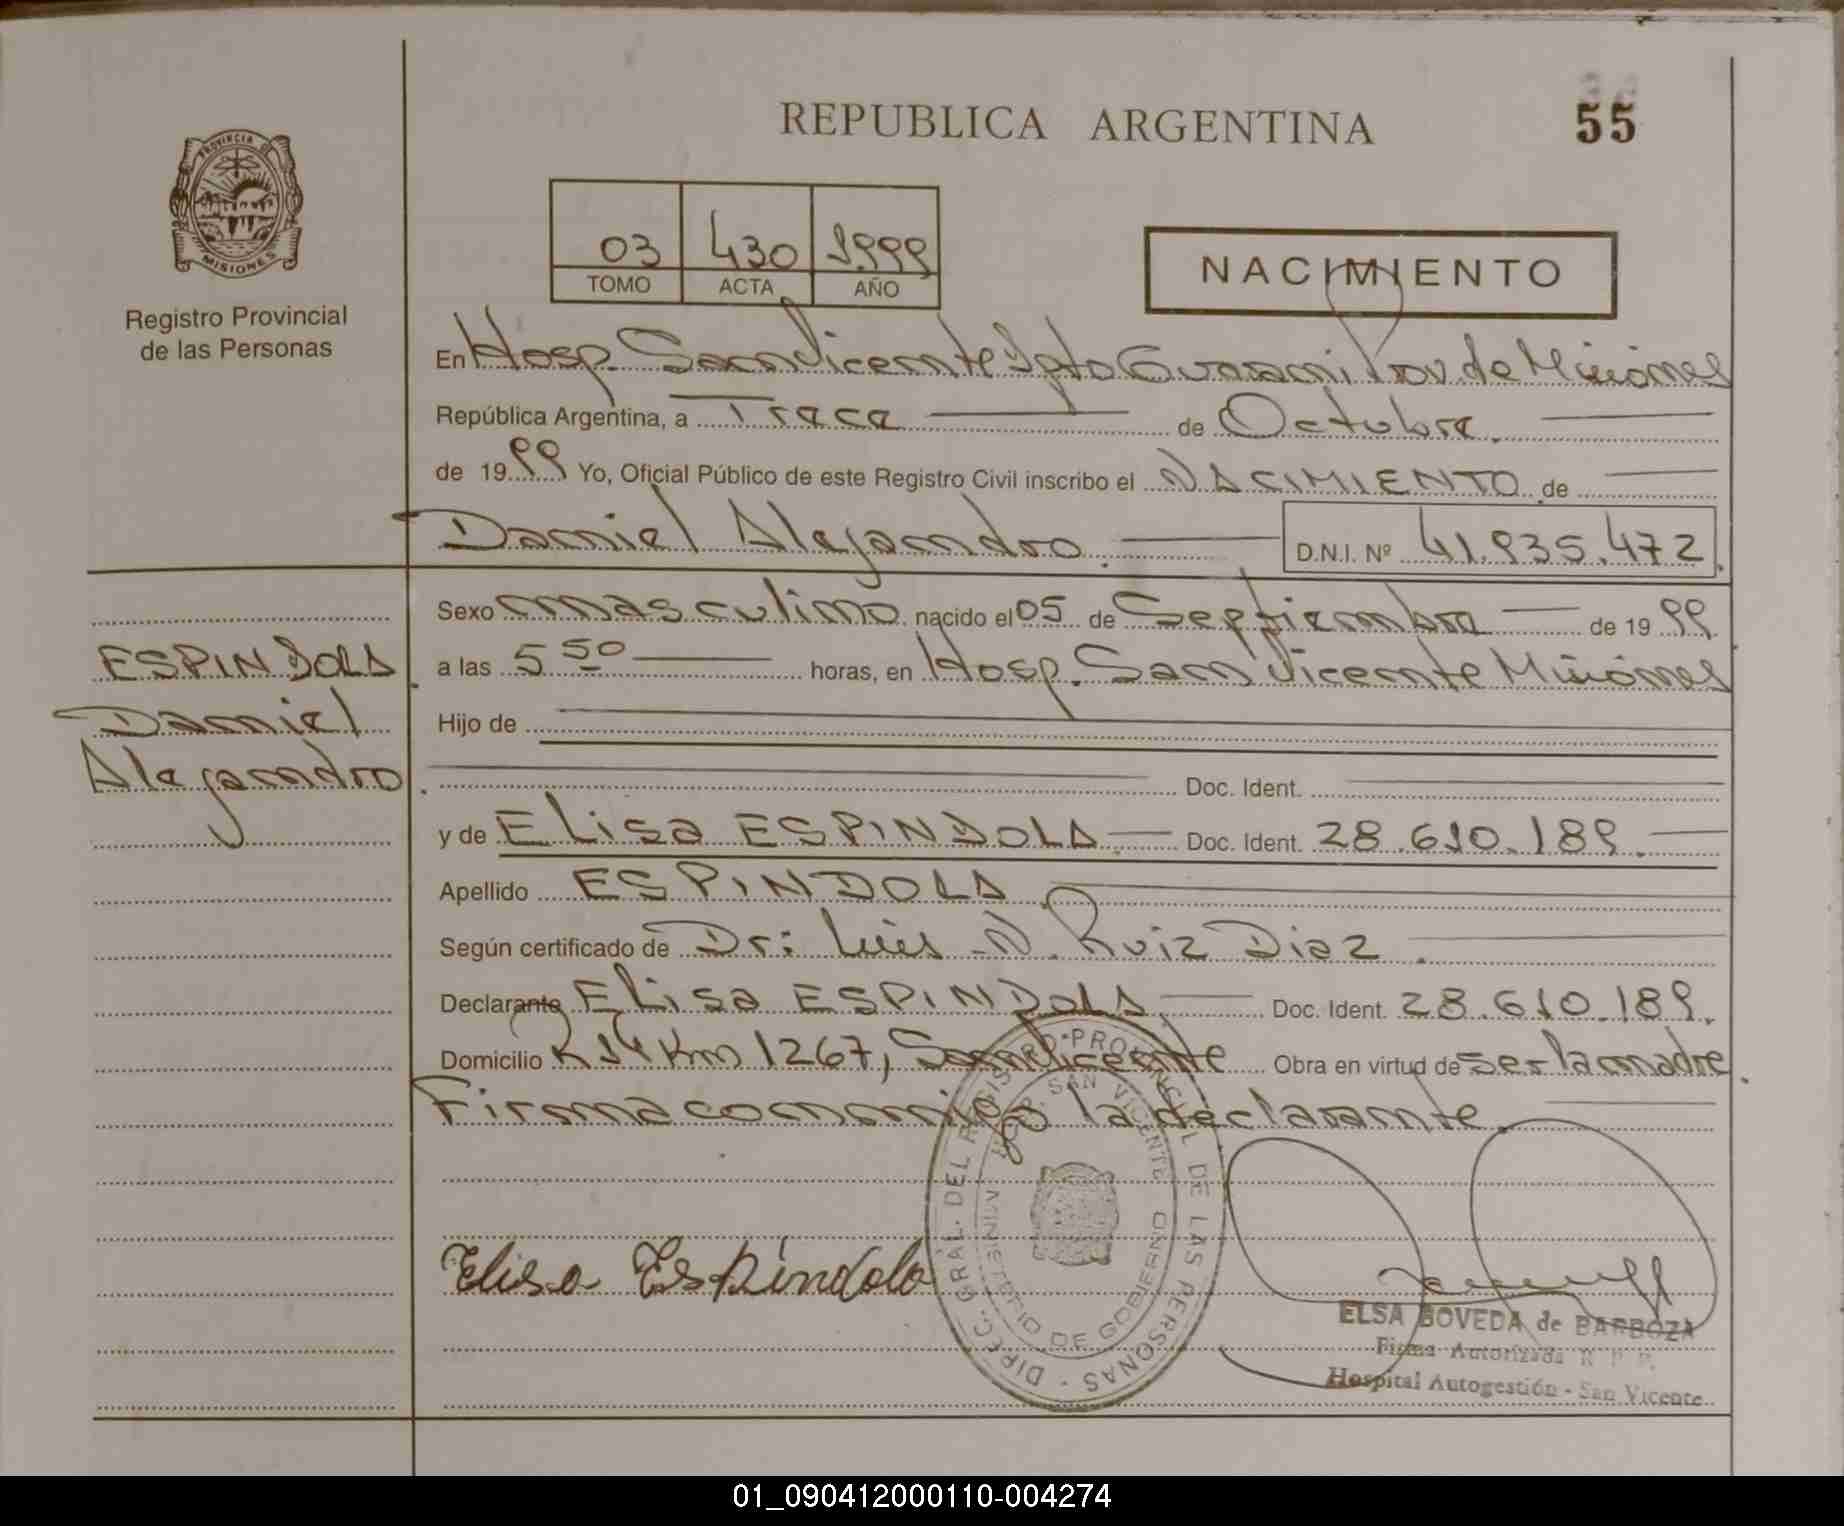 REPUBLICA ARGENTINA
55
PROVINCIA DE MISIONES
Registro Provincial
de las Personas
03 430 1999
TOMO ACTA AÑO
NACIMIENTO
En Hosp. San Vicente Dpto Guarani Prov de Misiones
República Argentina, a Trece de Octubre.
de 1999 Yo, Oficial Público de este Registro Civil inscribo el NACIMIENTO de
Daniel Alejandro. D.N.I. Nº 41.935.472
ESPINDOLA
Daniel
Alejandro
Sexo masculino nacido el 05 de Septiembre de 1999
a las 5 50 horas, en Hosp. San Vicente Misiones
Hijo de
Doc. Ident.
y de Elisa ESPINDOLA. Doc. Ident. 28.610.189.
Apellido ESPINDOLA.
Según certificado de Dr: Luis N. Ruiz Diaz.
Declarante Elisa ESPINDOLA. Doc. Ident. 28.610.189.
Domicilio R 14 Km 1267, San Vicente Obra en virtud de ser la madre.
Firma conmigo la declarante.
DIREC. GRAL. DEL REGISTRO PROVINCIAL DE LAS PERSONAS
HOSP. SAN VICENTE
MINISTERIO DE GOBIERNO
Elisa Espíndola
ELSA BOVEDA de BARBOZA
Firma Autorizada R. P. P.
Hospital Autogestión - San Vicente
01_090412000110-004274